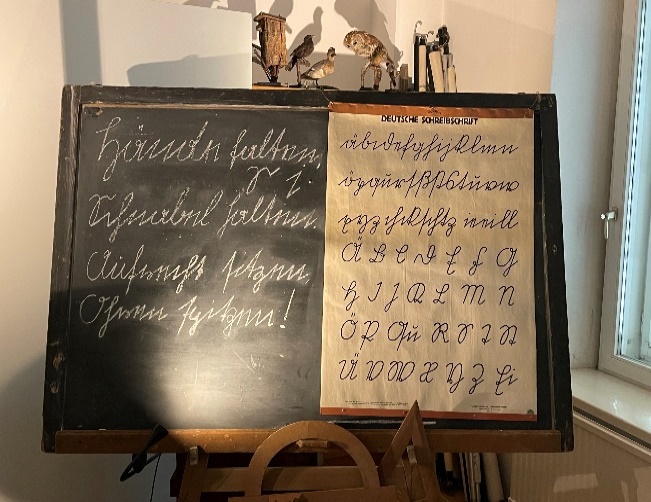 Hände falten,
Schnabel halten.
Aufrecht sitzen,
Ohren spitzen!
DEUTSCHE SCHREIBSCHRIFT
äbcdefghijklmn
öpqurſßstüvw
xyz ch ck sch tz
Ä B C D E F G
H I J K L M N
Ö P Qu R S T St
Ü V W X Y Z